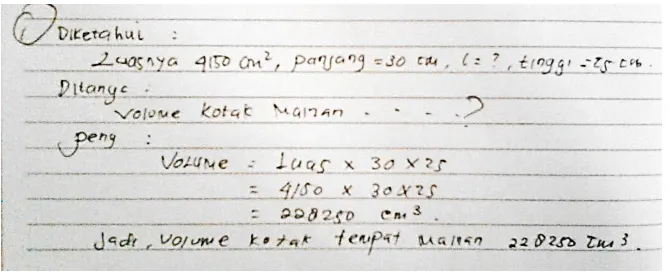 1) Diketahui :
Luasnya 4150 cm², panjang = 30 cm, l = ?, tinggi = 25 cm.
Ditanya :
Volume kotak mainan . . . . ?
peng :
Volume = Luas x 30 x 25
= 4150 x 30 x 25
= 228250 cm³.
Jadi, volume kotak tempat mainan 228250 cm³.